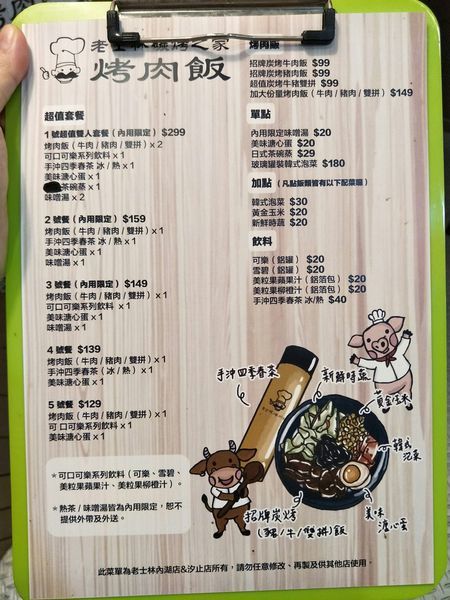 老士林碳烤之家
烤肉飯
超值套餐
1號超值雙人套餐(內用限定) $299
烤肉飯(牛肉/豬肉/雙拼)x 2
可口可樂系列飲料 x 1
手沖四季春茶 冰/熱 x 1
美味溏心蛋 x 1
茶碗蒸 x 1
味噌湯 x 2
2號餐(內用限定) $159
烤肉飯(牛肉/豬肉/雙拼)x 1
手沖四季春茶 冰/熱 x 1
美味溏心蛋 x 1
味噌湯 x 1
3號餐(內用限定) $149
烤肉飯(牛肉/豬肉/雙拼)x 1
可口可樂系列飲料 x 1
美味溏心蛋 x 1
味噌湯 x 1
4號餐 $139
烤肉飯(牛肉/豬肉/雙拼)x 1
手沖四季春茶(冰/熱)x 1
美味溏心蛋 x 1
5號餐 $129
烤肉飯(牛肉/豬肉/雙拼)x 1
可口可樂系列飲料 x 1
美味溏心蛋 x 1
*可口可樂系列飲料(可樂、雪碧、
美粒果蘋果汁、美粒果柳橙汁)。
*熱茶/味噌湯皆為內用限定,恕不
提供外帶及外送。
烤肉飯
招牌炭烤牛肉飯 $99
招牌炭烤豬肉飯 $99
超值炭烤牛豬雙拼飯 $99
加大份量烤肉飯(牛肉/豬肉/雙拼) $149
單點
內用限定味噌湯 $20
美味溏心蛋 $20
日式茶碗蒸 $29
玻璃罐裝韓式泡菜 $180
加點(凡點飯類皆有以下配菜喔)
韓式泡菜 $30
黃金玉米 $20
新鮮時蔬 $20
飲料
可樂(鋁罐) $20
雪碧(鋁罐) $20
美粒果蘋果汁(鋁箔包) $20
美粒果柳橙汁(鋁箔包) $20
手沖四季春茶 冰/熱 $40
手沖四季春茶
新鮮時蔬
黃金玉米
韓式
泡菜
美味
溏心蛋
招牌炭烤
(豬/牛/雙拼)飯
此菜單為老士林內湖店&汐止店所有,請勿任意修改、再製及供其他店使用。